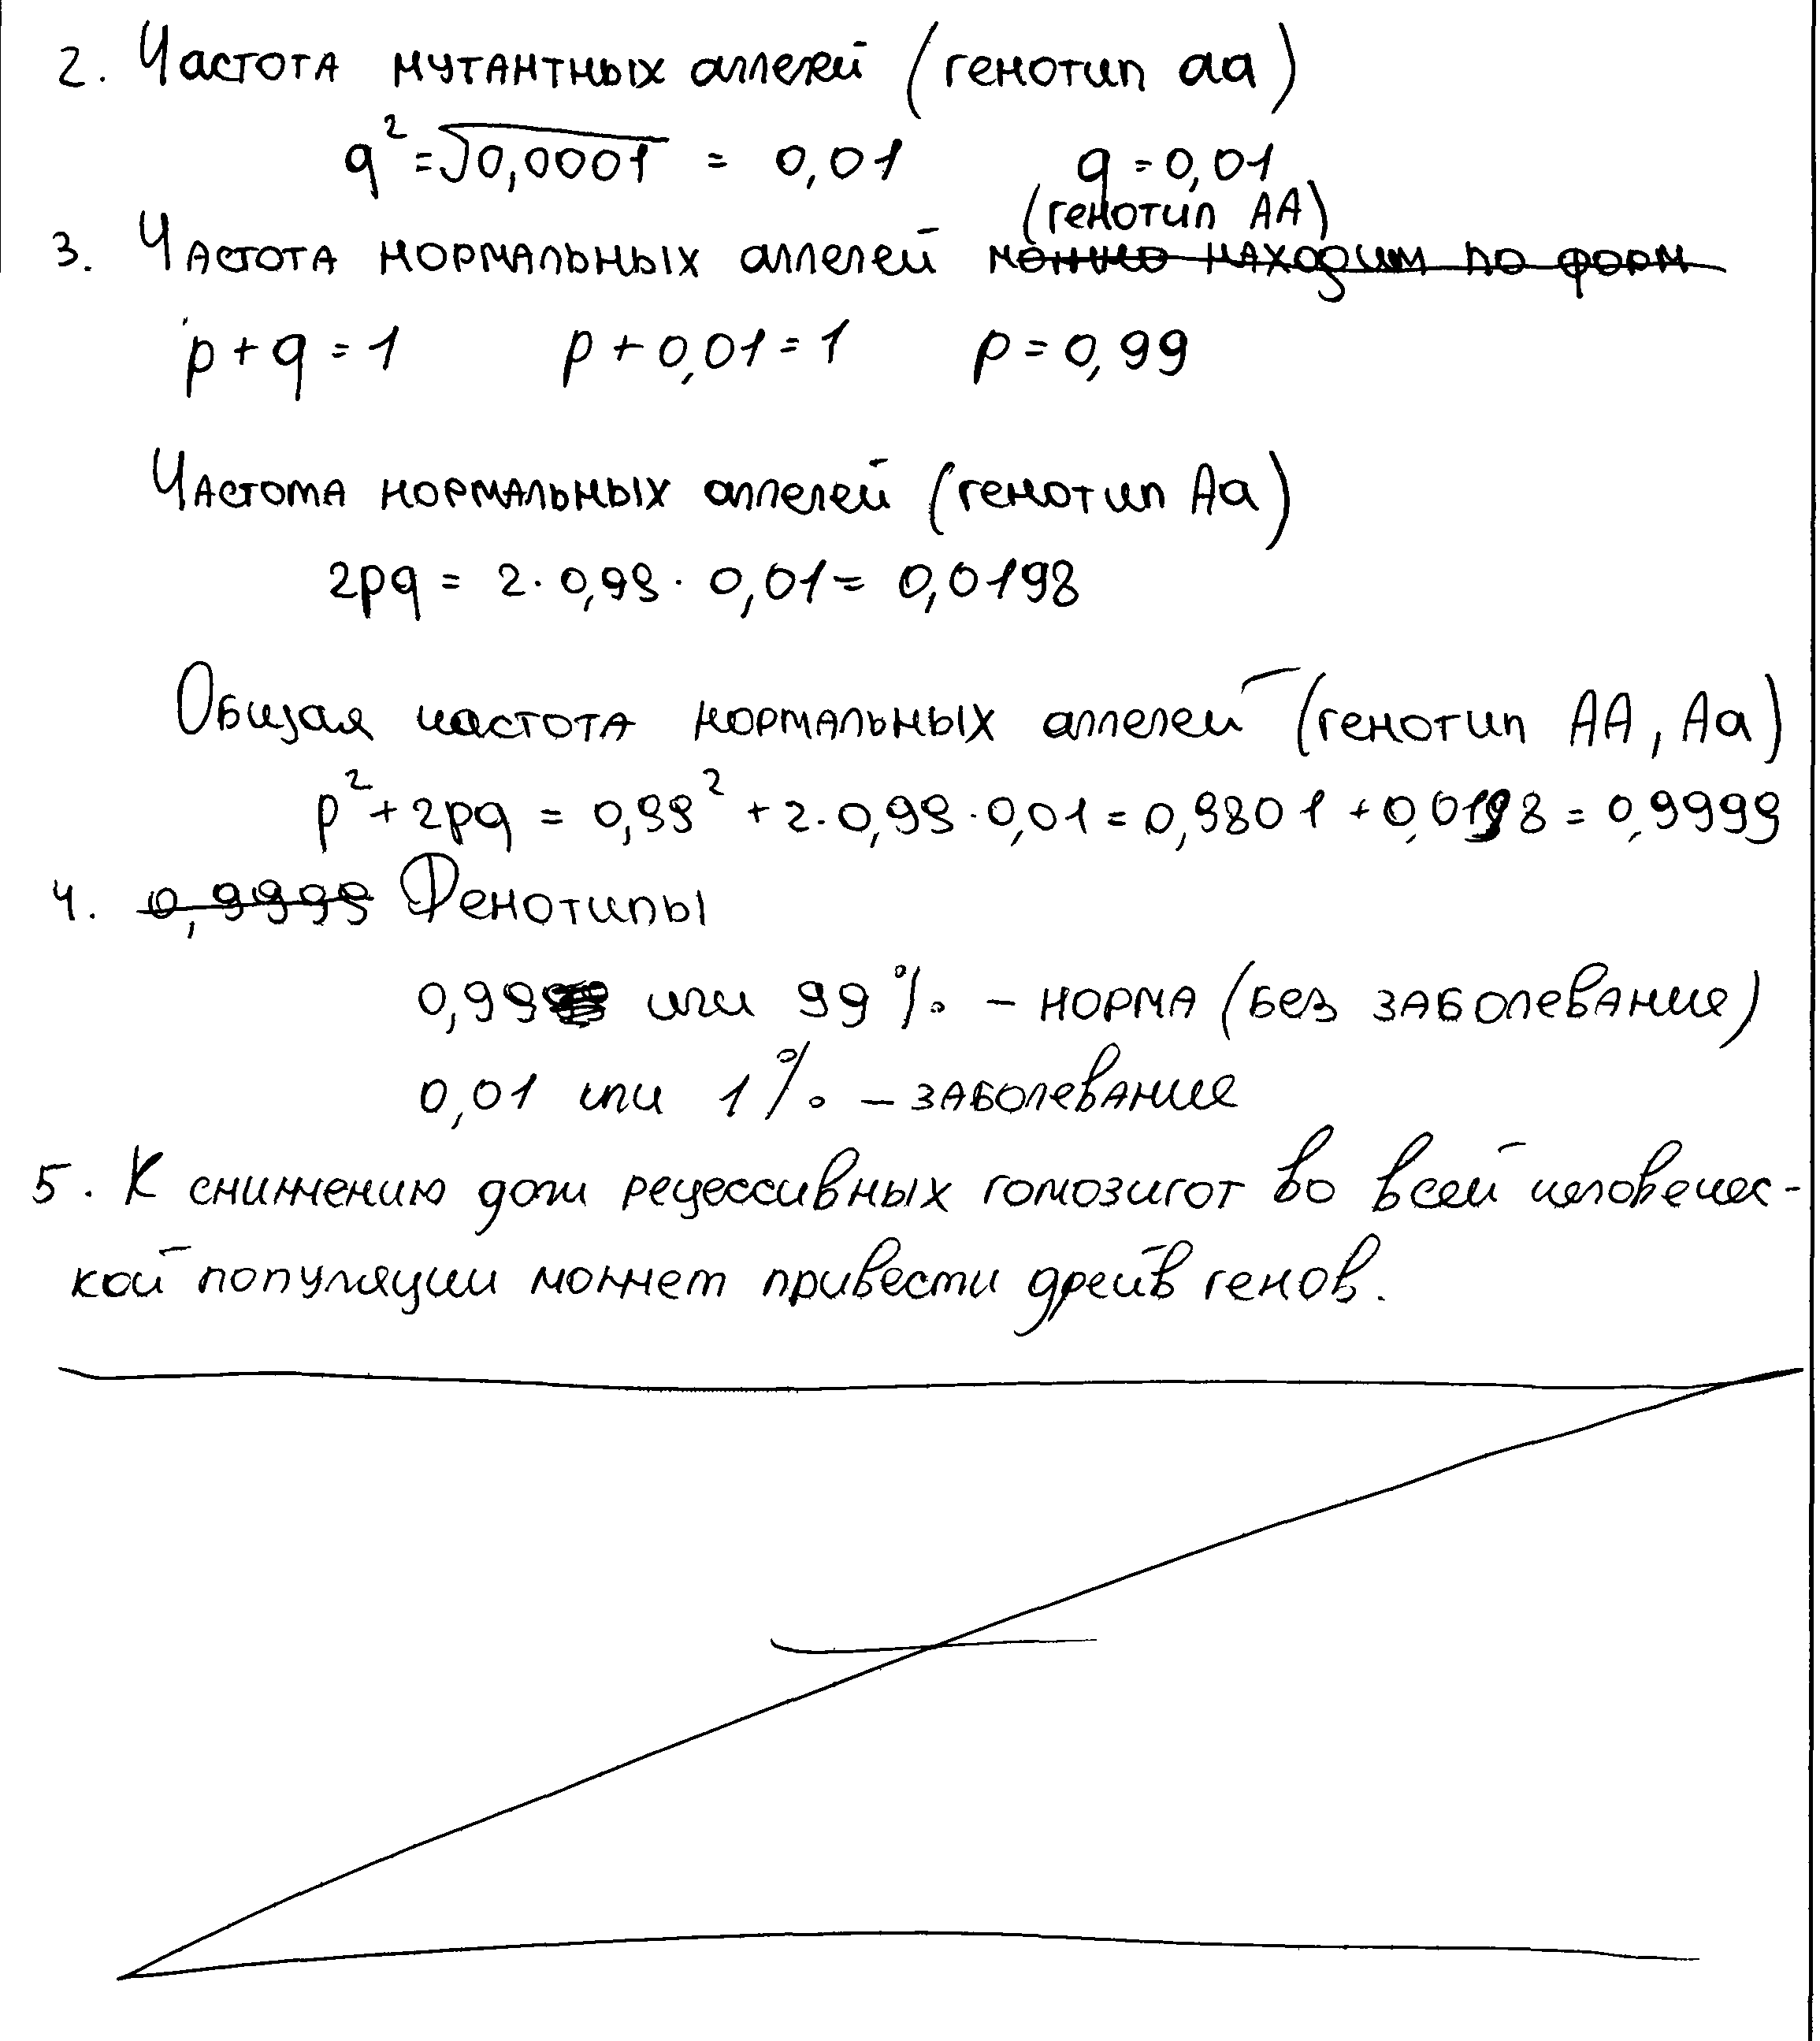 2. Частота мутантных аллелей (генотип аа)
q² = √0,0001 = 0,01 q = 0,01
(генотип АА)
3. Частота нормальных аллелей можно находим по форм
p + q = 1 p + 0,01 = 1 p = 0,99
Частота нормальных аллелей (генотип Аа)
2pq = 2 · 0,99 · 0,01 = 0,0198
Общая частота нормальных аллелей (генотип АА, Аа)
p² + 2pq = 0,99² + 2 · 0,99 · 0,01 = 0,9801 + 0,0198 = 0,9999
4. 0,9999 Фенотипы
0,99 или 99% – норма (без заболевание)
0,01 или 1% – заболевание
5. К снижению доли рецессивных гомозигот во всей человечес-
кой популяции может привести дрейв генов.